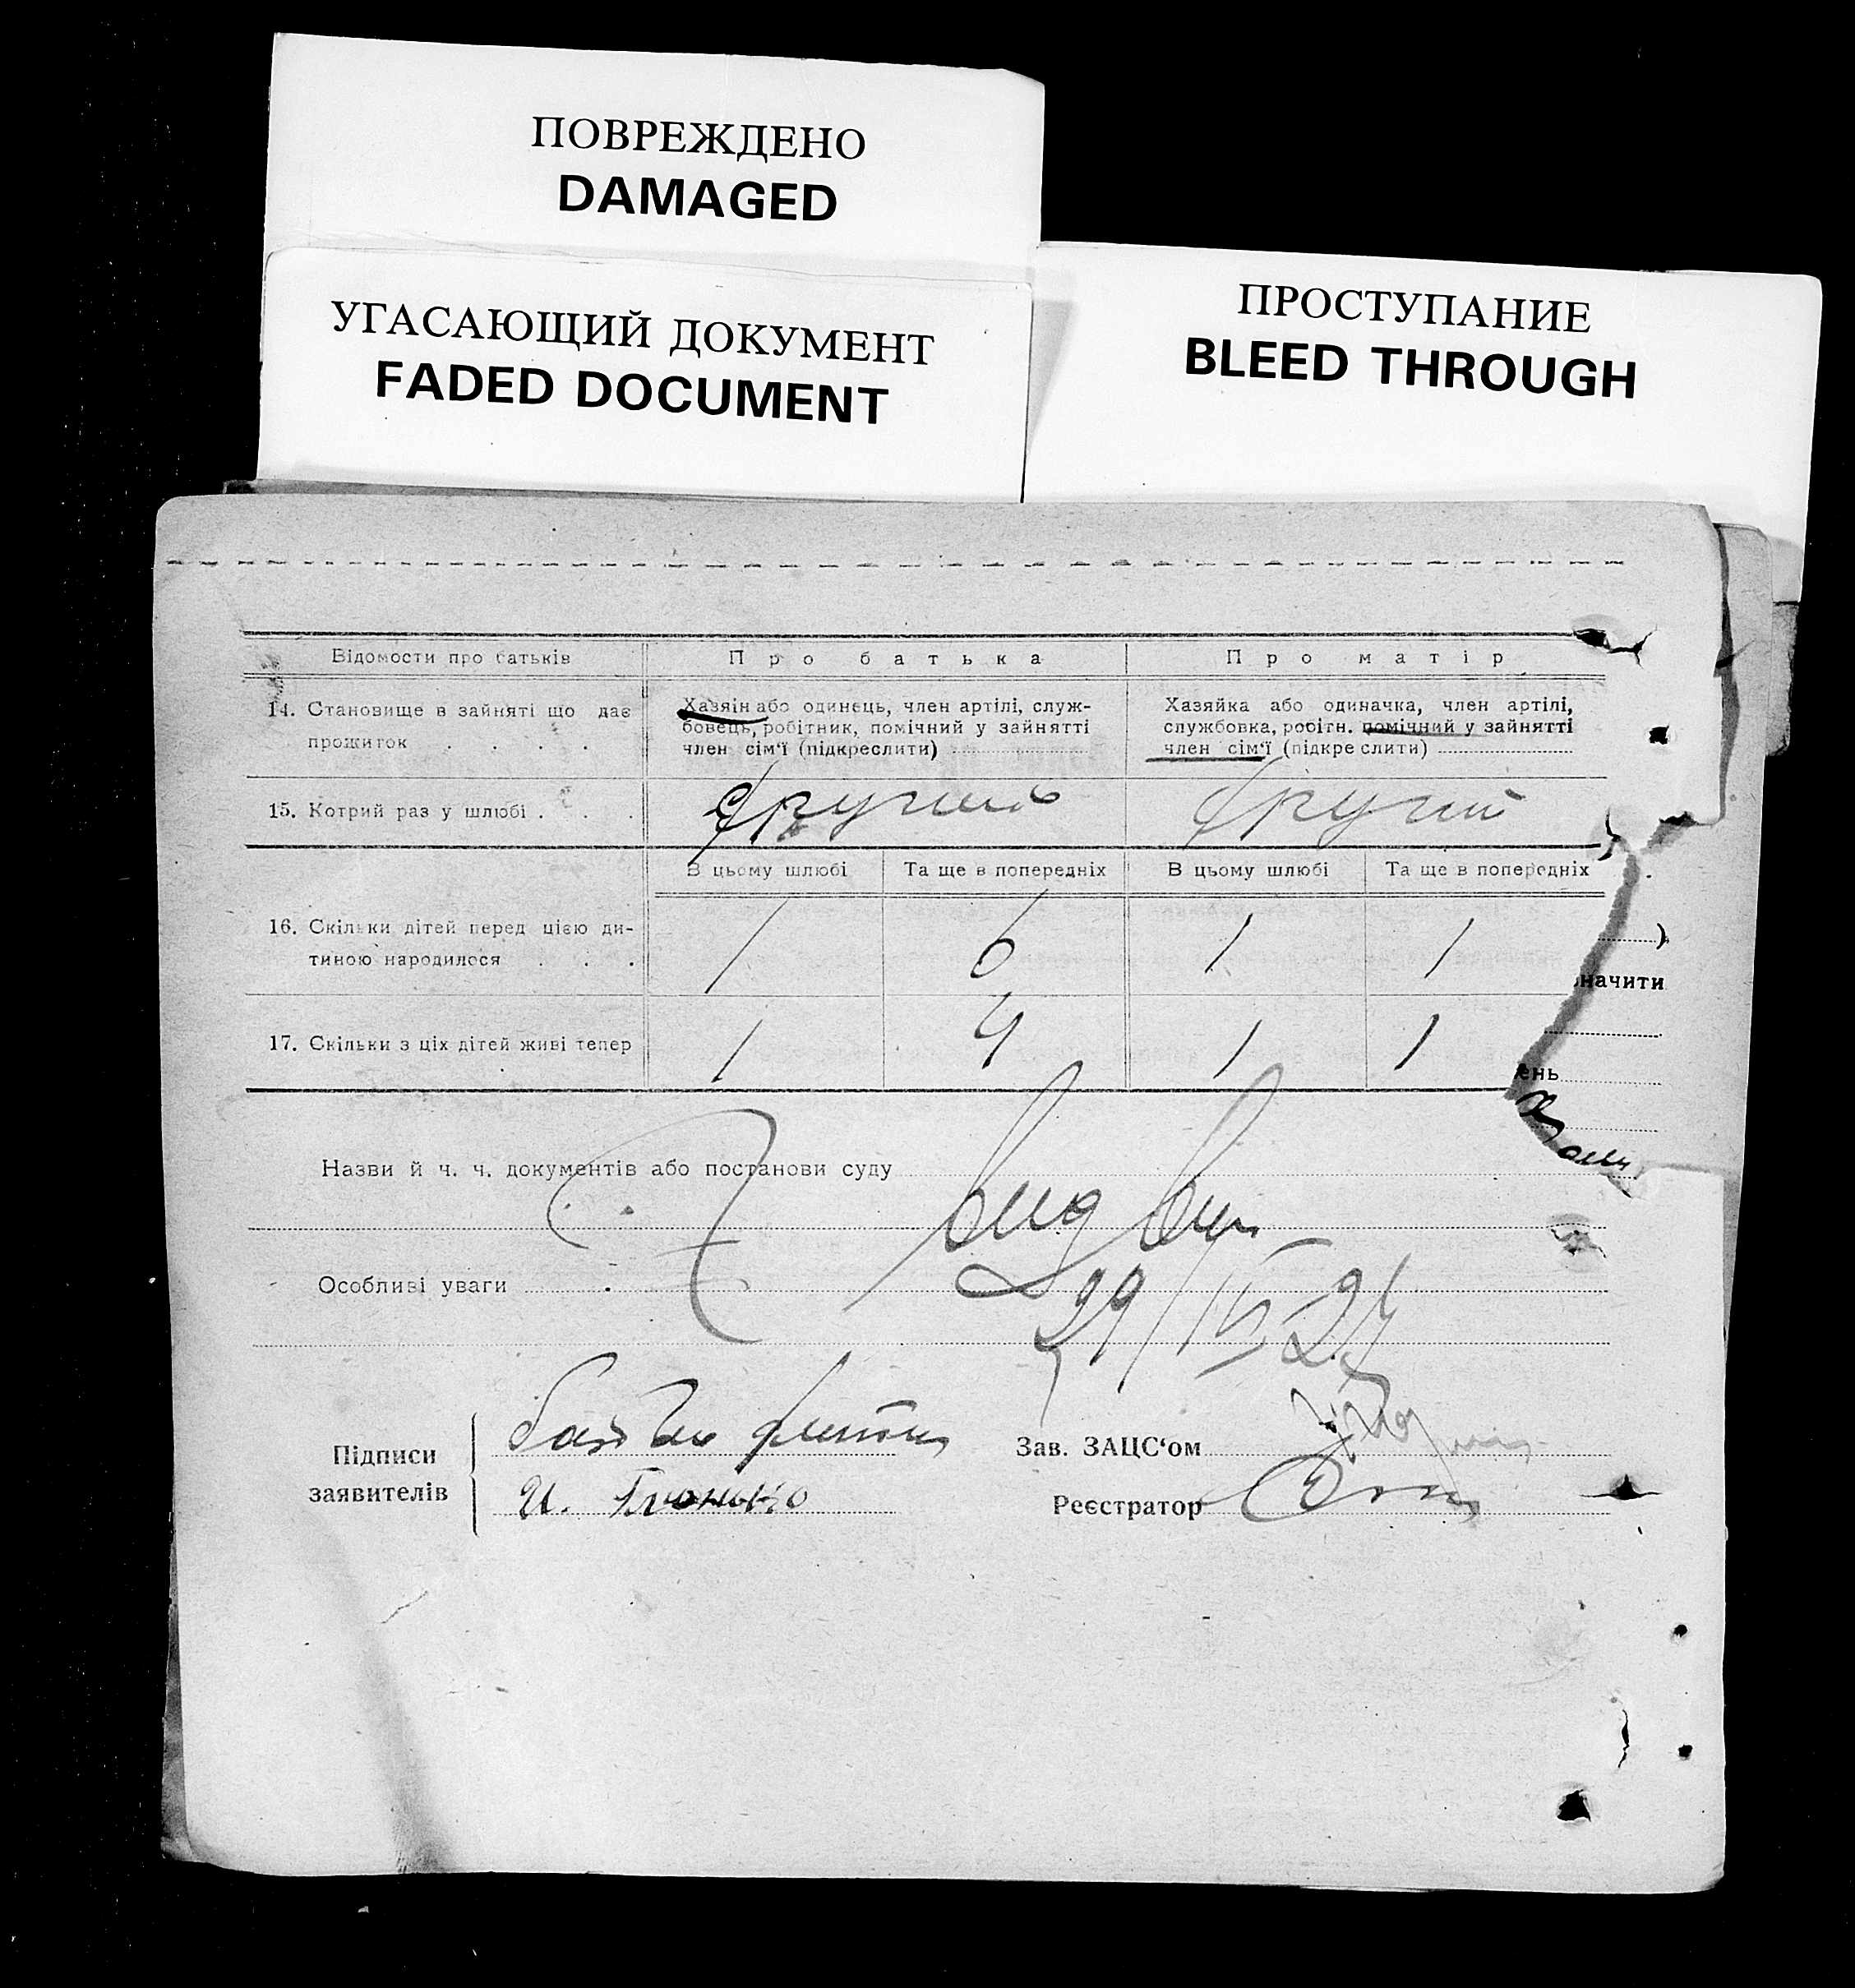 ПОВРЕЖДЕНО
DAMAGED
УГАСАЮЩИЙ ДОКУМЕНТ
FADED DOCUMENT
ПРОСТУПАНИЕ
BLEED THROUGH
Відомости про батьків Про батька Про матір
14. Становище в зайняті що дає прожиток . . . .
Хазяін або одинець, член артілі, служ-
бовець, робітник, помічний у зайнятті
член сім'ї (підкреслити)
Хазяйка або одиначка, член артілі,
службовка, робітн. помічний у зайнятті
член сім'ї (підкреслити)
15. Котрий раз у шлюбі . . . другий
В цьому шлюбі Та ще в попередніх В цьому шлюбі Та ще в попередніх
16. Скільки дітей перед цією ди-
тиною народилося . . . 1 6 1 1
17. Скільки з ціх дітей живі тепер 1 4 1 1
)
начити
ень
Назви й ч. ч. документів або постанови суду
Особливі уваги
Підписи
заявителів
И.
Зав. ЗАЦС'ом
Реєстратор